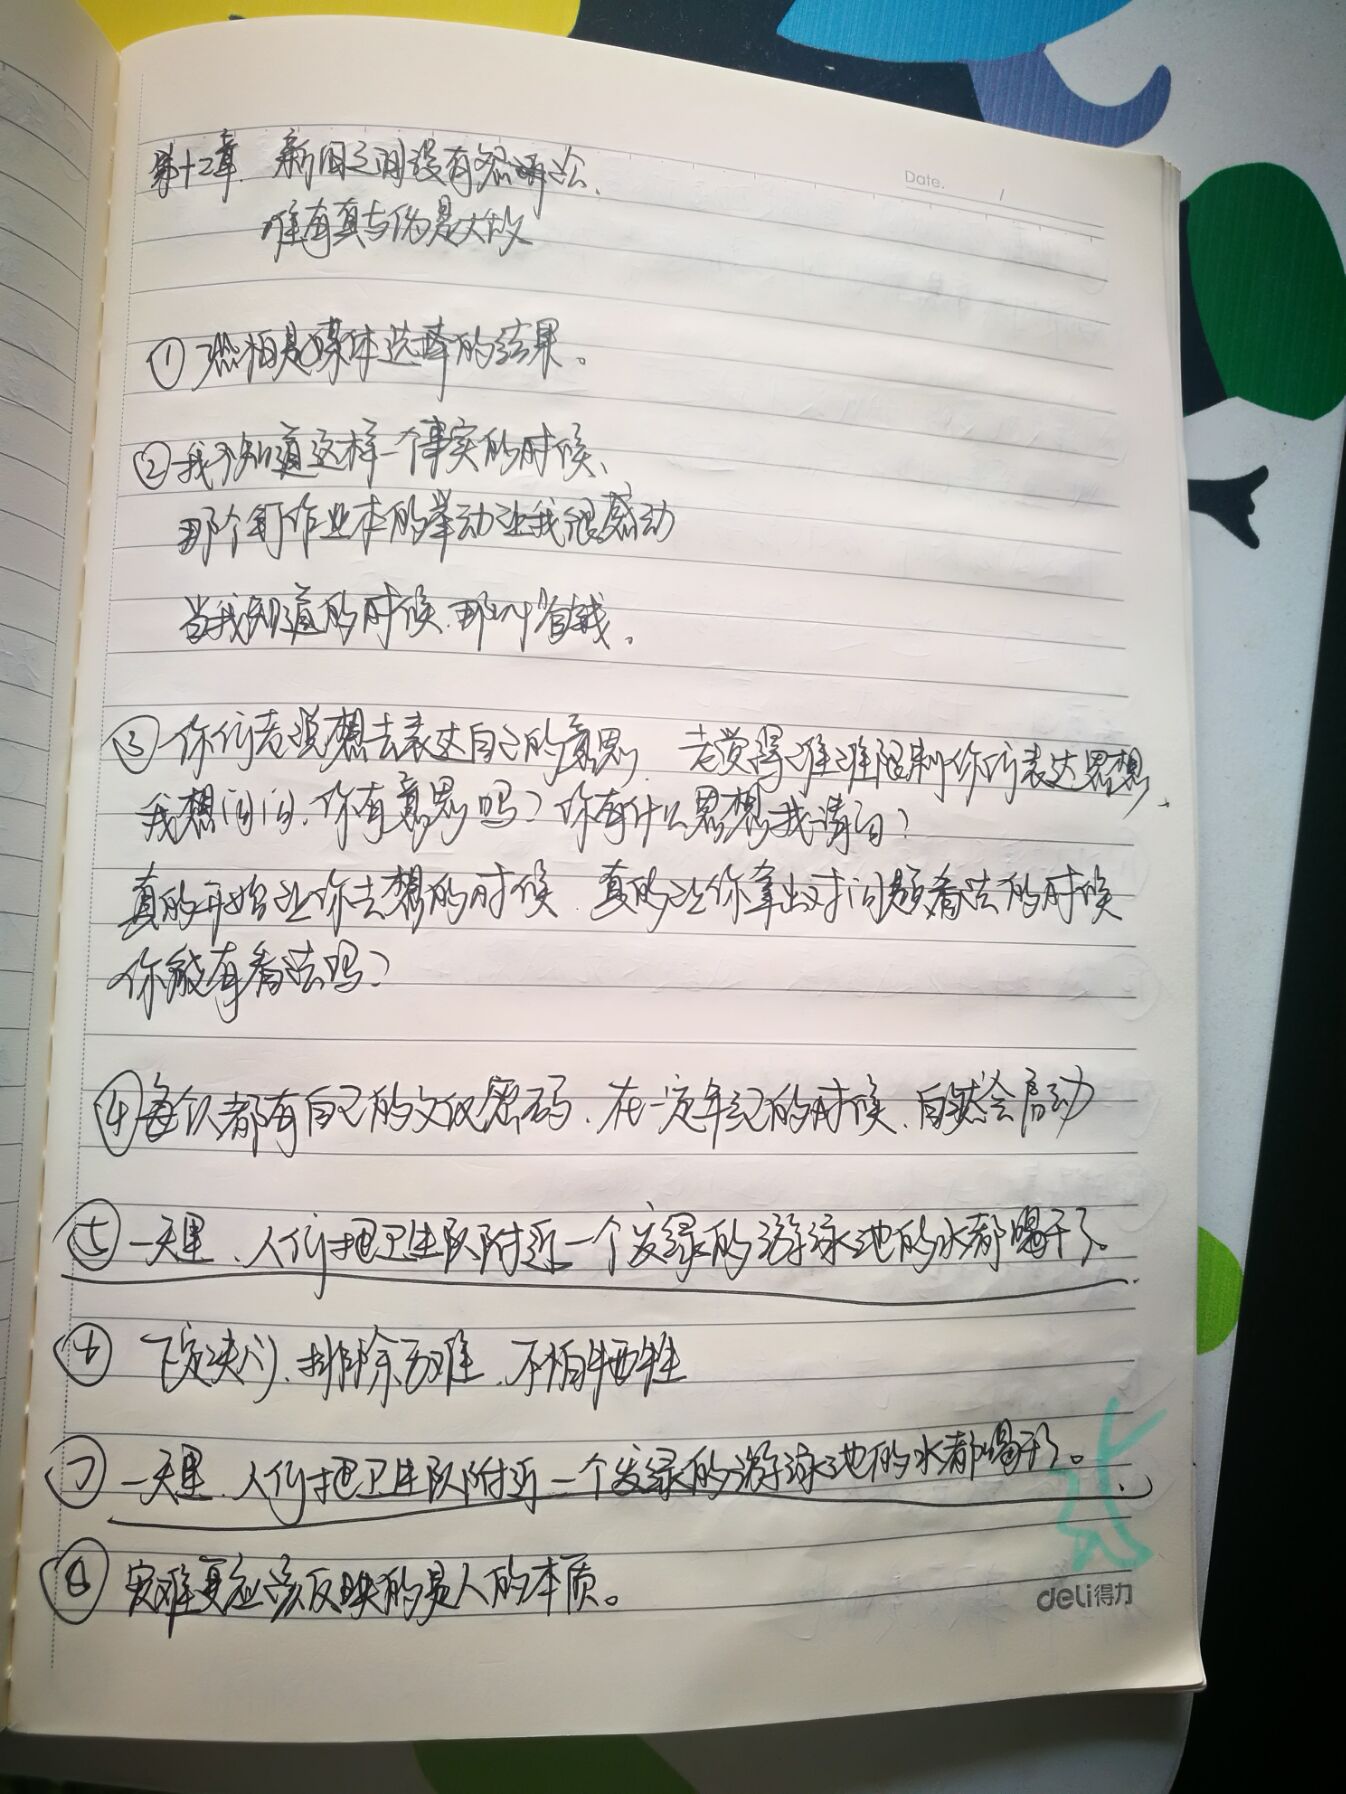 第十二章. 新旧之间没有怨讼.
唯有真与伪是大敌
Date.
① 恐怕是媒体选择的结果。
② 我不知道这样一个事实的时候、
那个订作业本的举动让我很感动
当我知道的时候.那叫省钱。
③ 你们老说想去表达自己的意思. 老觉得谁谁限制你们表达思想.
我想问问.你有意思吗？你有什么思想我请问？
真的开始让你去想的时候.真的让你拿出对问题看法的时候
你能有看法吗？
④ 每个人都有自己的文化密码.在一定年纪的时候.自然会启动
⑤ 一夜里.人们把卫生队附近一个发绿的游泳池的水都喝干了。
⑥ 下定决心.排除万难.不怕牺牲
⑦ 一夜里.人们把卫生队附近一个发绿的游泳池的水都喝干了。
⑧ 灾难更应该反映的是人的本质。
deli得力